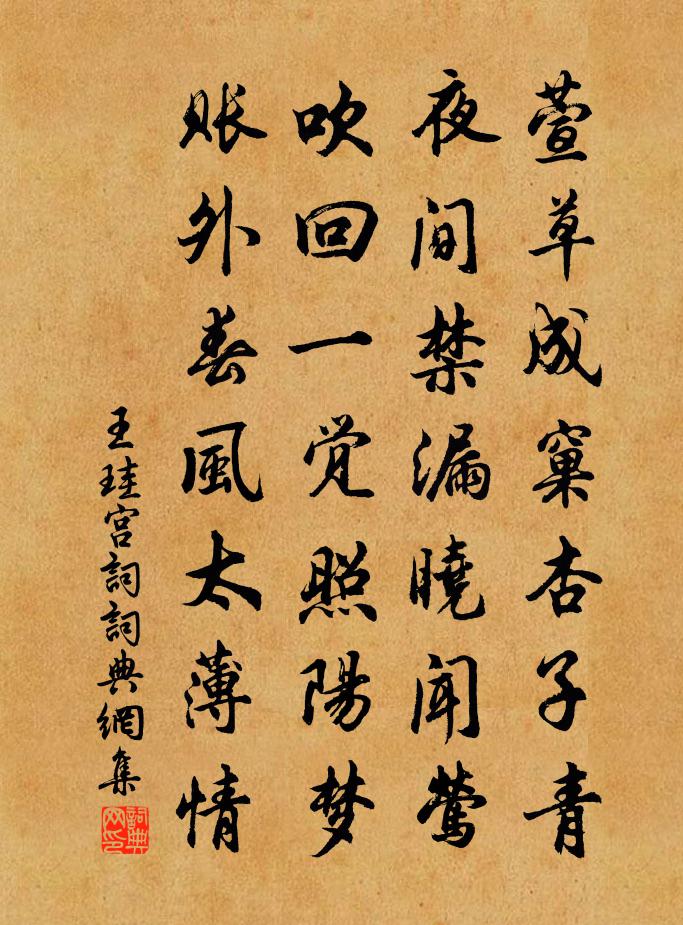 萱草成窠杏子青
夜间禁漏曉闻莺
吹回一觉照陽梦
账外春風太薄情
王珪宫詞詞典網集
詞典网印